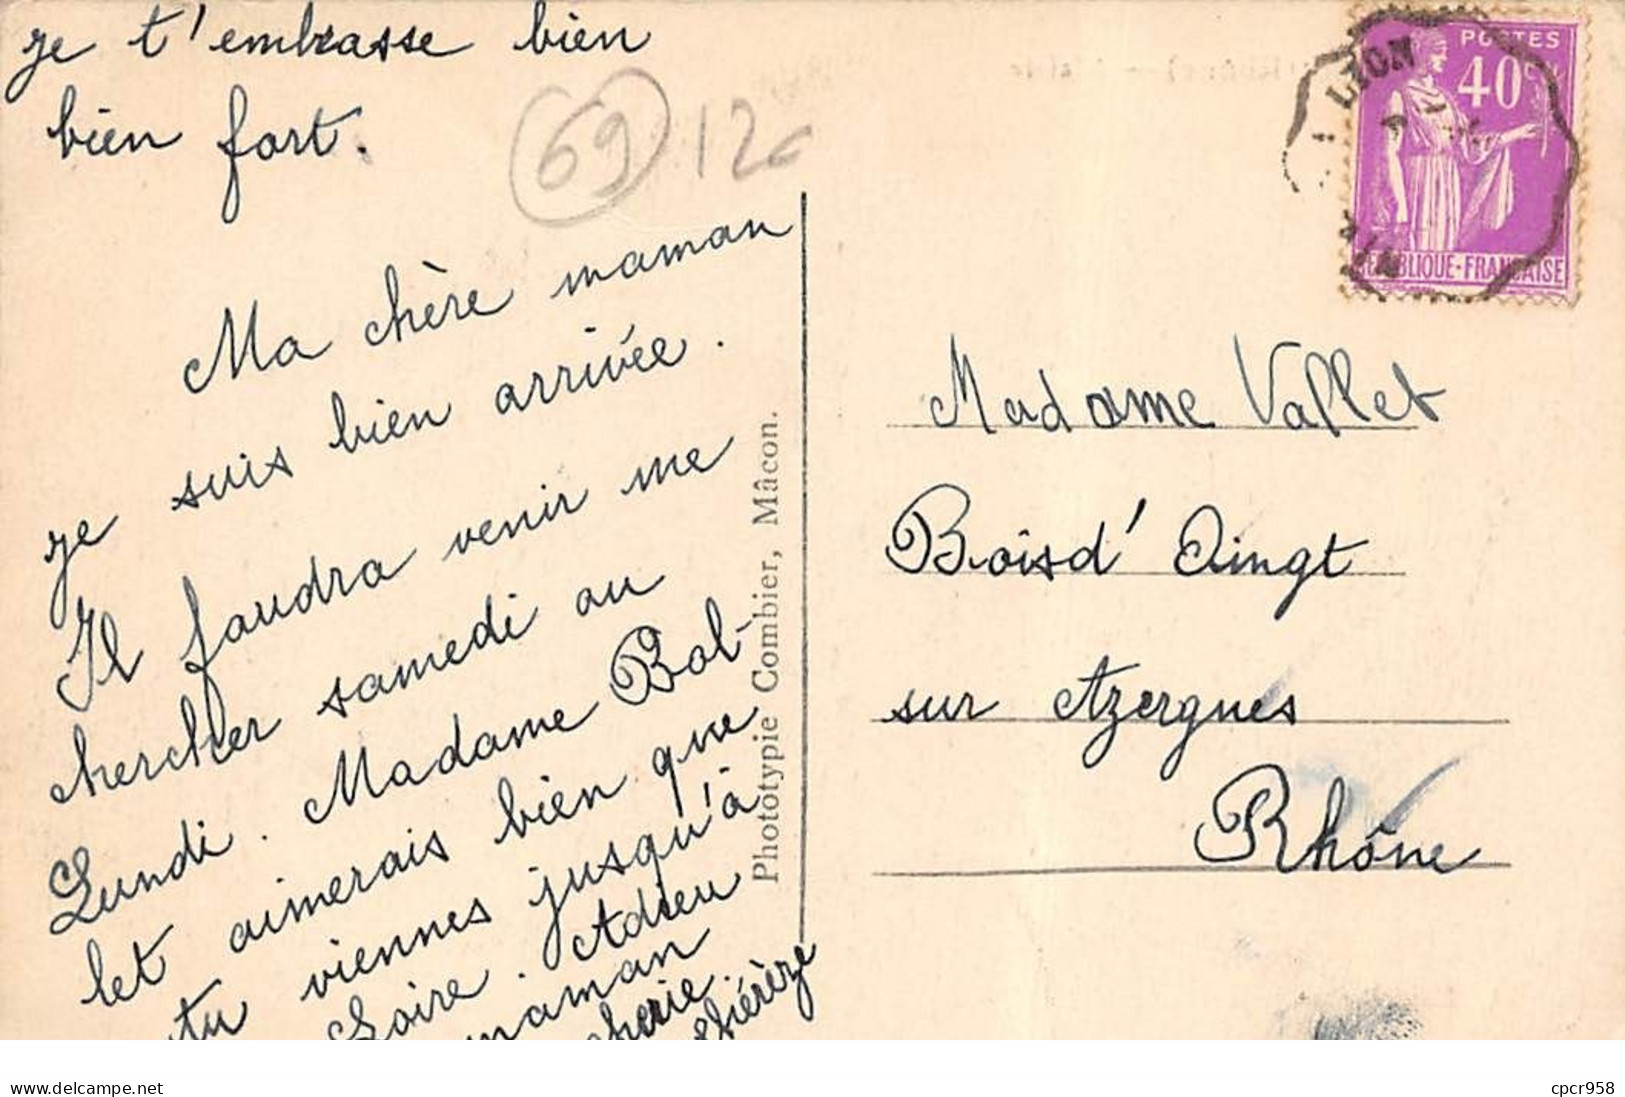 je t'embrasse bien
bien fort.
69 12
Ma chère maman
je suis bien arrivée.
Il faudra venir me
chercher samedi ou
Lundi. Madame Bol-
let aimerais bien que
tu viennes jusqu'à
Loire. Adieu
maman
cherie.
Phototypie Combier, Mâcon.
POSTES
40c
REPUBLIQUE-FRANÇAISE
LYON
Madame Vallet
Boisd'Oingt
sur Azergues
Rhône
cpcr958